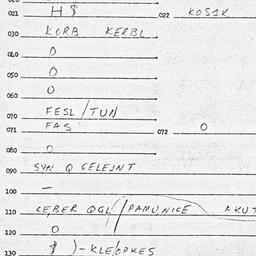 021 H $ 022 KOS1K
030 KORB KERBL
040 O
050 O
060 O
070 FESL/TUN
071 FAS 072 O
080 O
090 SYN Q GELEJNT
100 –
110 CEBER QGL/PAMUNICE
120 O
130 $ )-KLE/OPKES